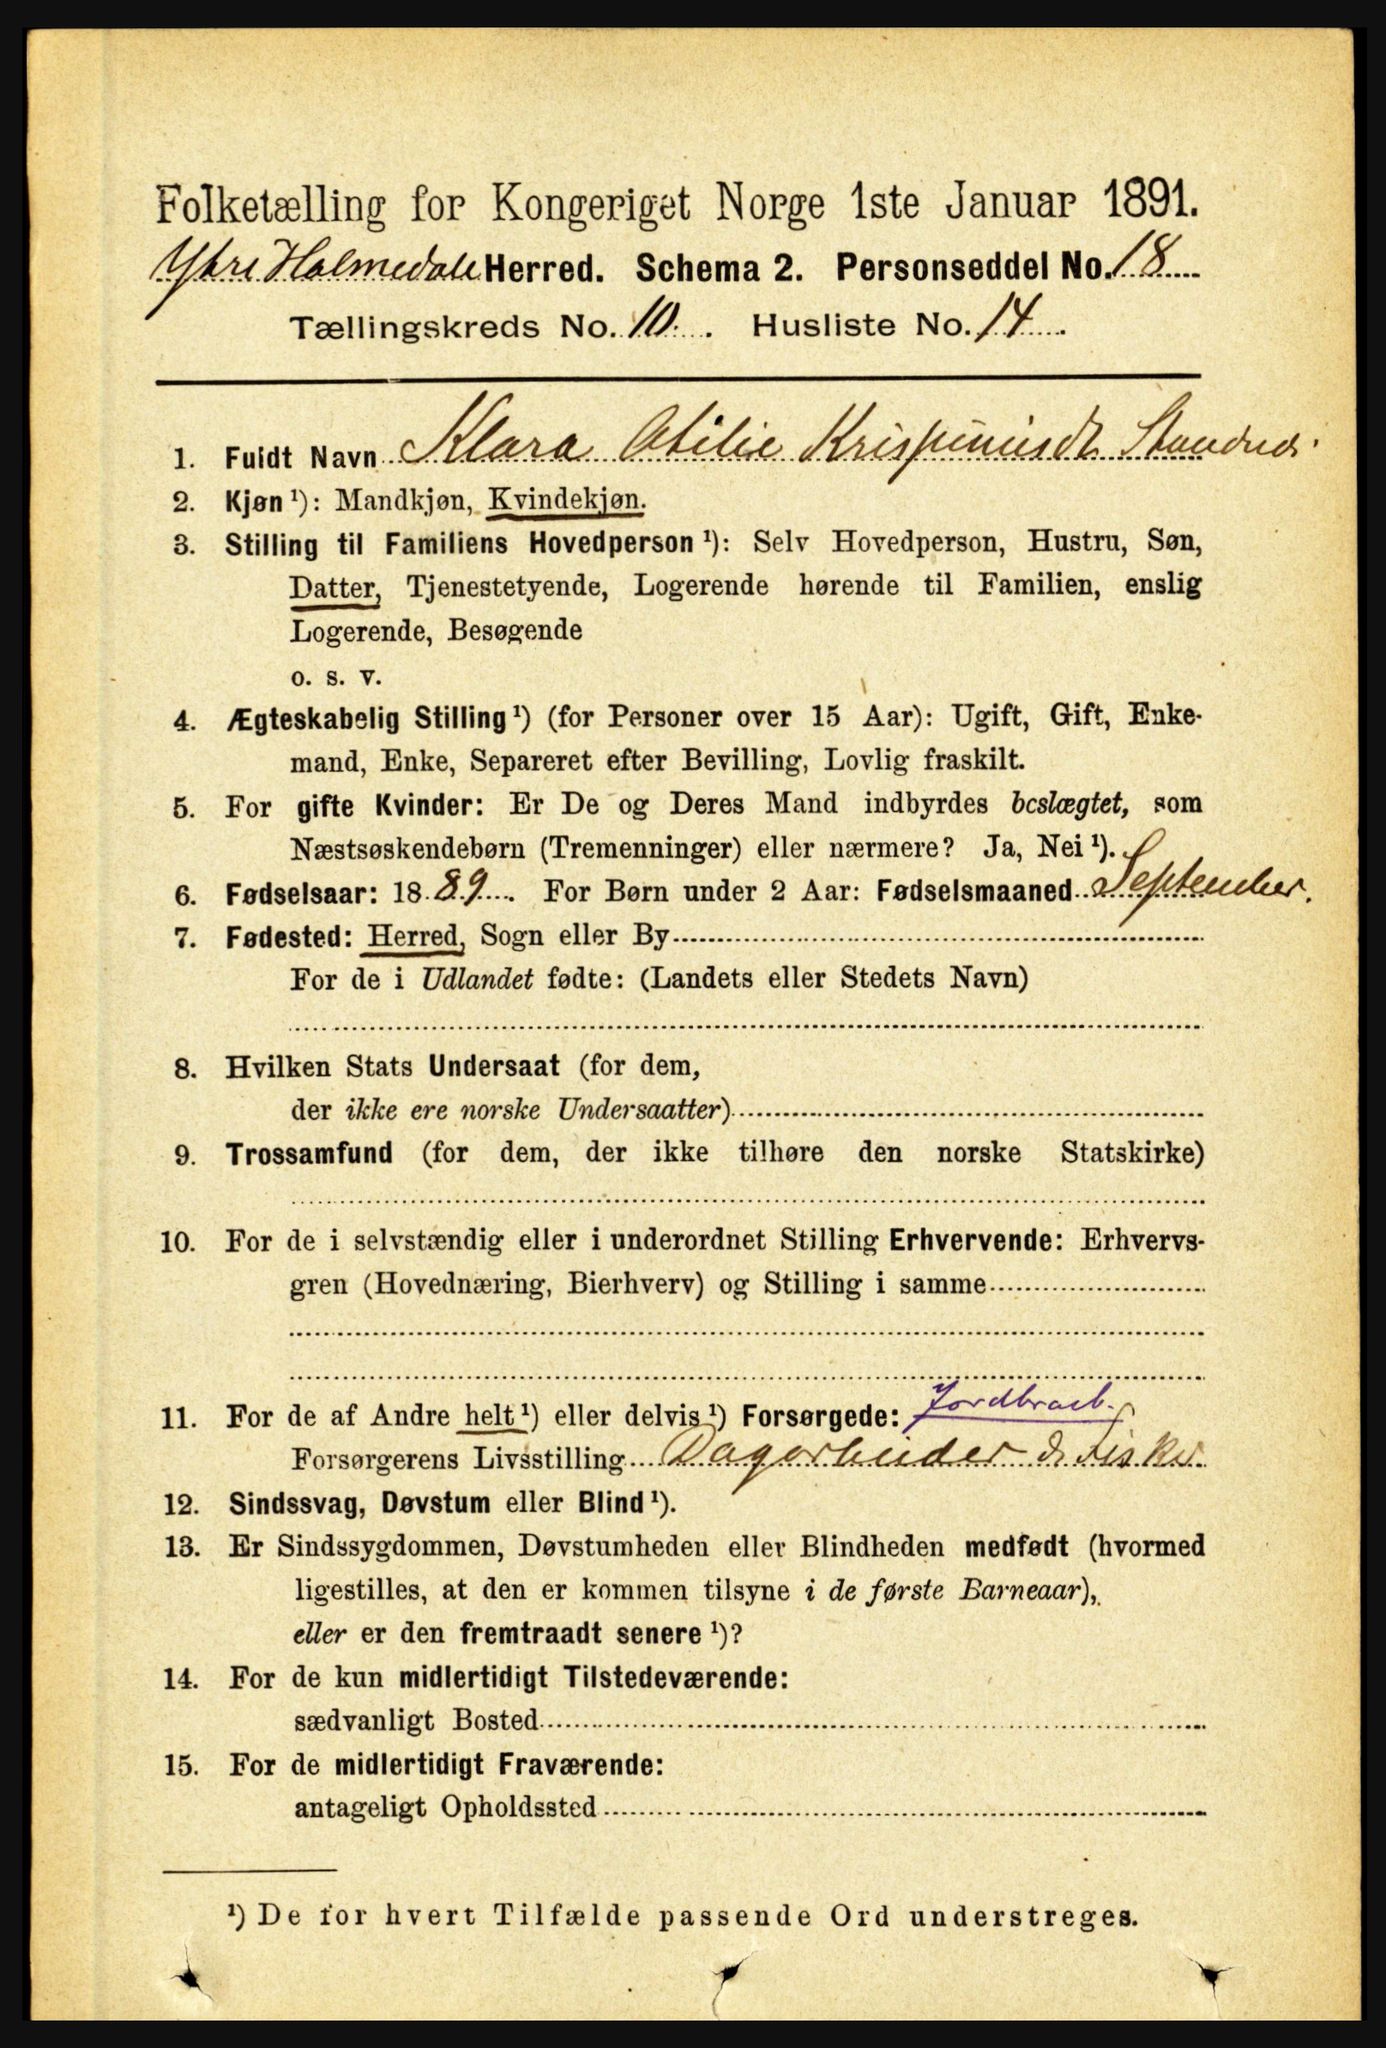 Folketælling for Kongeriget Norge 1ste Januar 1891.
Ytre Holmedale Herred. Schema 2. Personseddel No. 18
Tællingskreds No. 10. Husliste No. 14
1. Fuldt Navn Klara Otilie
2. Kjøn ¹): Mandkjøn, Kvindekjøn.
3. Stilling til Familiens Hovedperson ¹): Selv Hovedperson, Hustru, Søn,
Datter, Tjenestetyende, Logerende hørende til Familien, enslig
Logerende, Besøgende
o. s. v.
4. Ægteskabelig Stilling ¹) (for Personer over 15 Aar): Ugift, Gift, Enke-
mand, Enke, Separeret efter Bevilling, Lovlig fraskilt.
5. For gifte Kvinder: Er De og Deres Mand indbyrdes beslægtet, som
Næstsøskendebørn (Tremenninger) eller nærmere? Ja, Nei ¹).
6. Fødselsaar: 1889. For Børn under 2 Aar: Fødselsmaaned September.
7. Fødested: Herred, Sogn eller By
For de i Udlandet fødte: (Landets eller Stedets Navn)
8. Hvilken Stats Undersaat (for dem,
der ikke ere norske Undersaatter)
9. Trossamfund (for dem, der ikke tilhøre den norske Statskirke)
10. For de i selvstændig eller i underordnet Stilling Erhvervende: Erhvervs-
gren (Hovednæring, Bierhverv) og Stilling i samme
Jordbrarb.
11. For de af Andre helt ¹) eller delvis ¹) Forsørgede:
Forsørgerens Livsstilling Dagarbeider & Fisker
12. Sindssvag, Døvstum eller Blind ¹).
13. Er Sindssygdommen, Døvstumheden eller Blindheden medfødt (hvormed
ligestilles, at den er kommen tilsyne i de første Barneaar),
eller er den fremtraadt senere ¹)?
14. For de kun midlertidigt Tilstedeværende:
sædvanligt Bosted
15. For de midlertidigt Fraværende:
antageligt Opholdssted
¹) De for hvert Tilfælde passende Ord understreges.